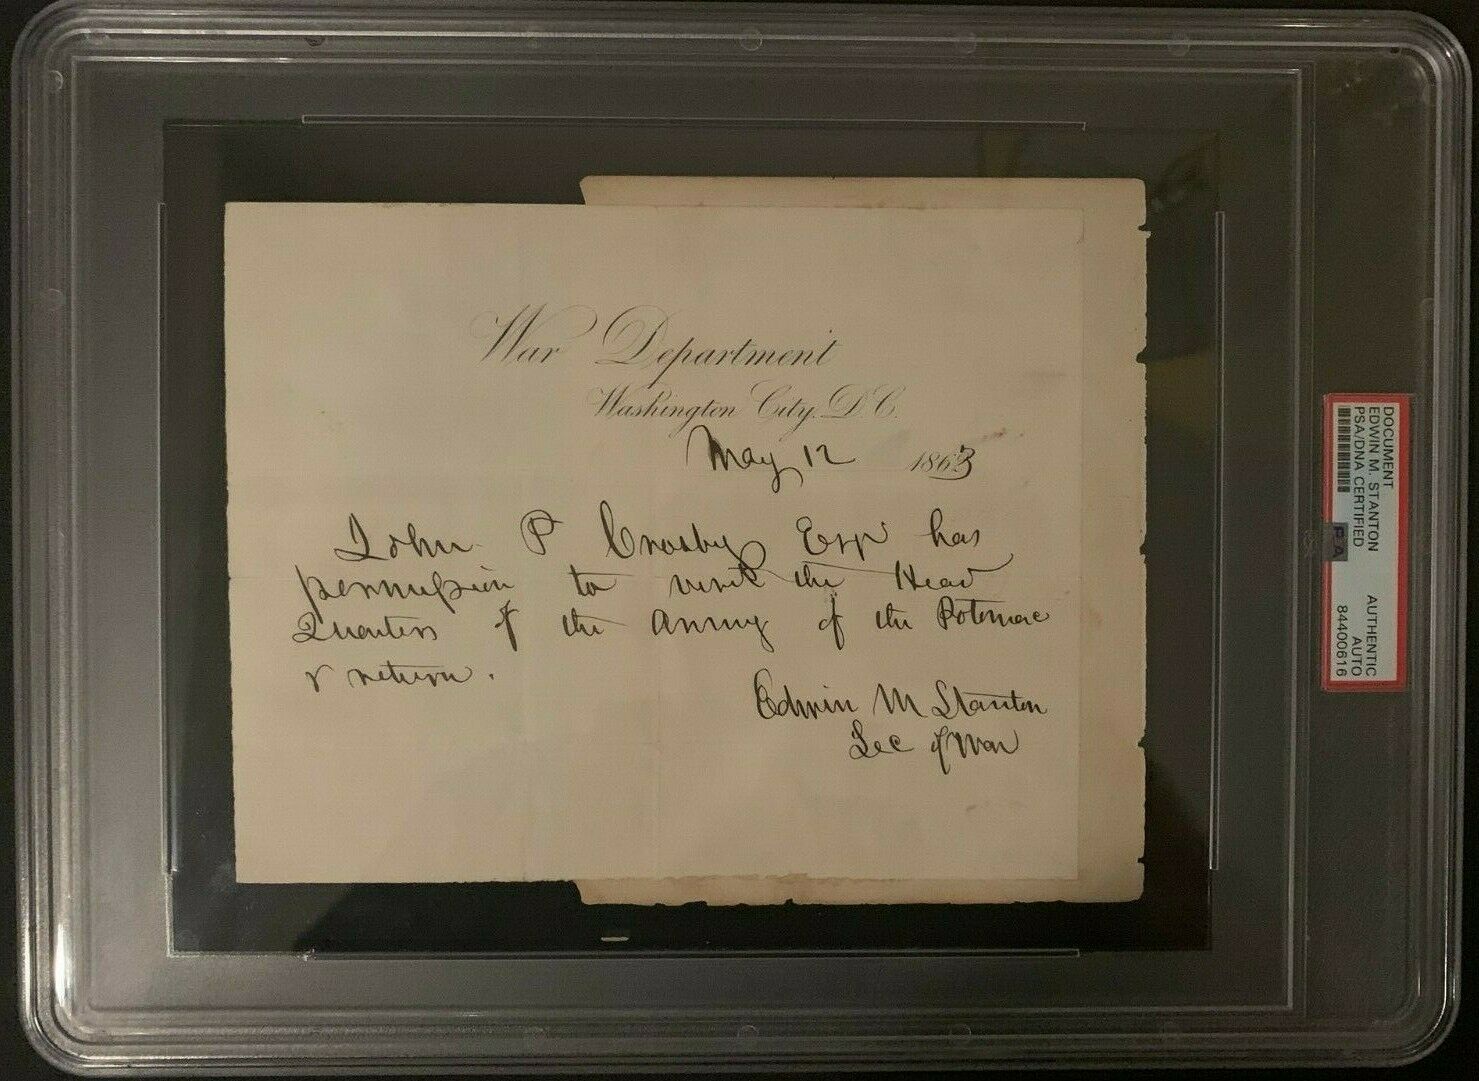 War Department
Washington City, D.C.
May 12 1863
John P Crosby Esqr has
permission to visit the Head
Quarters of the Army of the Potomac
& return.
Edwin M Stanton
Sec of War
DOCUMENT
EDWIN M. STANTON
PSA/DNA CERTIFIED
AUTHENTIC
AUTO
84400616
PSA